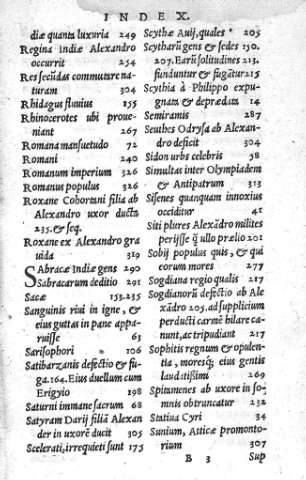 INDEX.
diæ quanta luxuria 249
Regina Indiæ Alexandro
occurrit 254
Res secūdas commutare na-
turam 304
Rhidagus fluuius 155
Rhinocerotes ubi proue-
niant 267
Romana mansuetudo 72
Romani 240
Romanum imperium 326
Romanus populus 326
Roxane Cohortani filia ab
Alexandro uxor ducta
235. & seq.
Roxane ex Alexandro gra
uida 319
Sabracæ Indiæ gens 290
Sabracarum deditio 291
Sacæ 153.235
Sanguinis riui in igne, &
eius guttas in pane appa-
ruisse 63
Sarisophori 106
Satibarzanis defectio & fu-
ga.164. Eius duellum cum
Erigyio 198
Saturni immane sacrum 68
Satyram Darij filiā Alexan
der in uxorē ducit 305
Scelerati, irrequieti sunt 175
Scythæ Auij, quales 205
Scytharū gens & sedes 130.
207. Earū solitudines 213.
funduntur & fugātur 215
Scythia à Philippo expu-
gnata & deprædata 14
Semiramis 287
Seuthes Odrysa ab Alexan-
dro deficit 304
Sidon urbs celebris 58
Simultas inter Olympiadem
& Antipatrum 313
Sisenes quanquam innoxius
occiditur 41
Siti plures Alexādri milites
perijsse q̄ ullo prælio 201
Sobij populus quis, & qui
eorum mores 277
Sogdiana regio qualis 217
Sogdianorū defectio ab Ale
xādro 205. ad supplicium
perducti carmē hilare ca-
nunt, ac tripudiant 217
Sophitis regnum & opulen-
tia, moresq́; eius gentis
laudatißimi 269
Spitamenes ab uxore in so-
mnis obtruncatur 232
Statiua Cyri 34
Sunium, Atticæ promonto-
rium 307
B 3 Sup